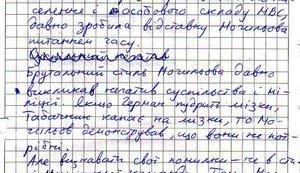 селення і особового складу МВС,
давно зробила відставку Могильова
питанням часу.
Брутальний стиль Могильова давно
викликав негатив суспільства і мі-
ліції. Якщо Герман пудрить мізки,
Табачник капає на мізки, то Мо-
гильов демонстрував, що вони не пот-
рібні.
Але визнавати свої помилки – не в